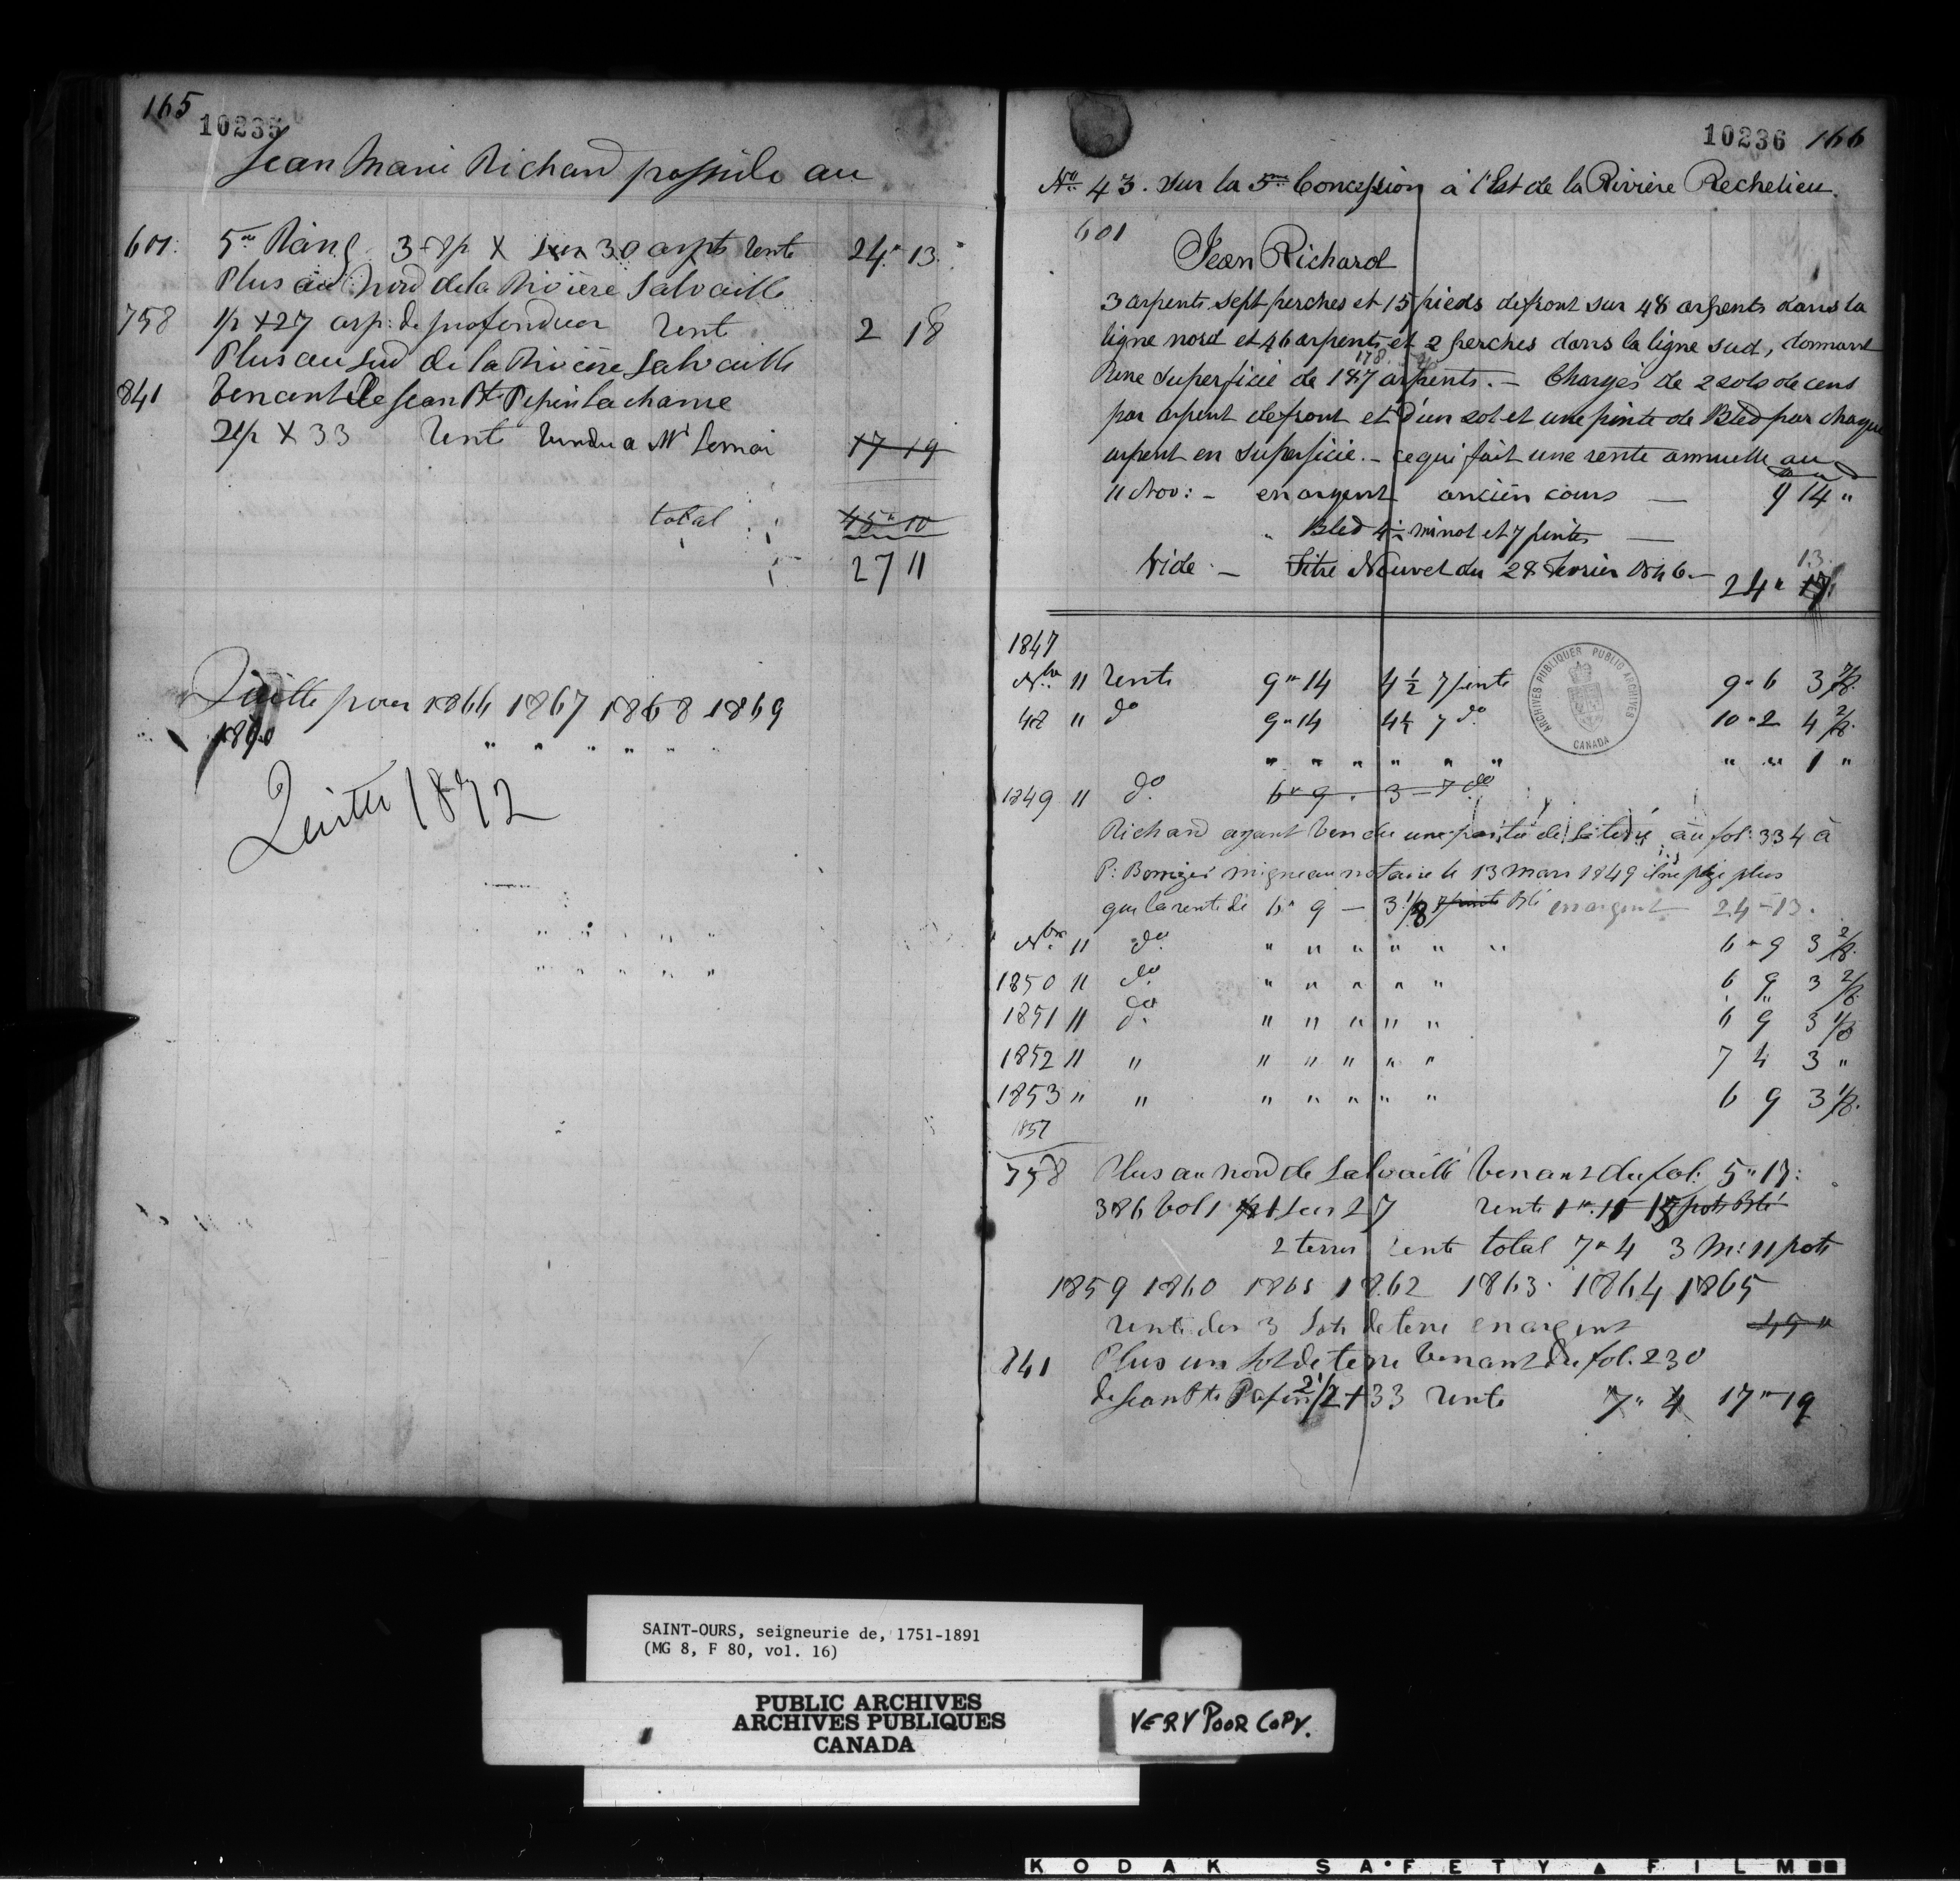 165
10235
Jean Marie Richard possède au
601. 5me Rang 3-8p X sur 30 arpts rente 24" 13.
Plus au Nord de la Rivière Salvaille
758 1/2 X 27 arp: de profondeur rent 2 18
Plus au Sud de la Rivière Salvaille
841 Venant de Jean Bte Pepin Lachance
2 1/2 X 33 rente vendu a Mr 17 19
total 45" 10
27 11
Quitte pour 1866 1867 1868 1869
1870 " " " " "
Quitte 1872
10236 166
No 43. Sur la 5me Concession à l'Est de la Rivière Rechelieu.
601
Jean Richard
3 arpents sept perches et 15 pieds de front sur 48 arpents dans la
ligne nord et 46 arpents et 2 perches dans la ligne sud, donnant
une superficie de 187 arpents. — Chargés de 2 sols de cens
178
par arpent de front et d'un sol et une pinte de Bled par chaque
arpent en superficie. — ce qui fait une rente annuelle au
11 Nov: — en argent ancien cours — 9 14 "
" Bled 4 1/2 minot et 7 pintes —
Vide — Titre Nouvel du 28 Fevrier 1846. —
13
24" 17
1847
Nbre 11 rente 9" 14 4 1/2 7 pinte 9" 6 3 7/8.
48 " do 9" 14 4 1/2 7 do 10" 2 4 2/8.
" " " " " " " " 1 "
1849 11 do 6" 9. 3 — 7 do
Richard ayant vendu une partie de sa terre au fol: 334 à
P: migneau notaire le 13 mars 1849 il ne paye plus
que la rente de 6" 9 — 3 1/8 7 pinte Blé en argent 24 — 13.
Nbre 11 do " " " " " " 6" 9 3 2/8.
1850 11 do " " " " " 6 9 3 2/8.
1851 11 do " " " " " 6 9 3 1/8
1852 11 " " " " " " 7 4 3 "
1853 " " " " " " " 6 9 3 1/8.
1857
758 Plus au nord de Salvaille venant du fol: 5" 17:
386 Vol 1 1 sur 27 rente 1" 11 pots Blé
2 terres rente total 7" 4 3 M: 11 pots
1859 1860 1861 1862 1863. 1864 1865
rente des 3 Lots de terre en argent 45 "
841 Plus un Lot de terre venant du fol. 230
de Jean Bte Pepin 2 1/2 + 33 rente 7" 4 17" 19
ARCHIVES PUBLIQUES PUBLIC ARCHIVES
CANADA
SAINT-OURS, seigneurie de, 1751-1891
(MG 8, F 80, vol. 16)
PUBLIC ARCHIVES
ARCHIVES PUBLIQUES
CANADA
VERY POOR COPY.
KODAK SAFETY FILM